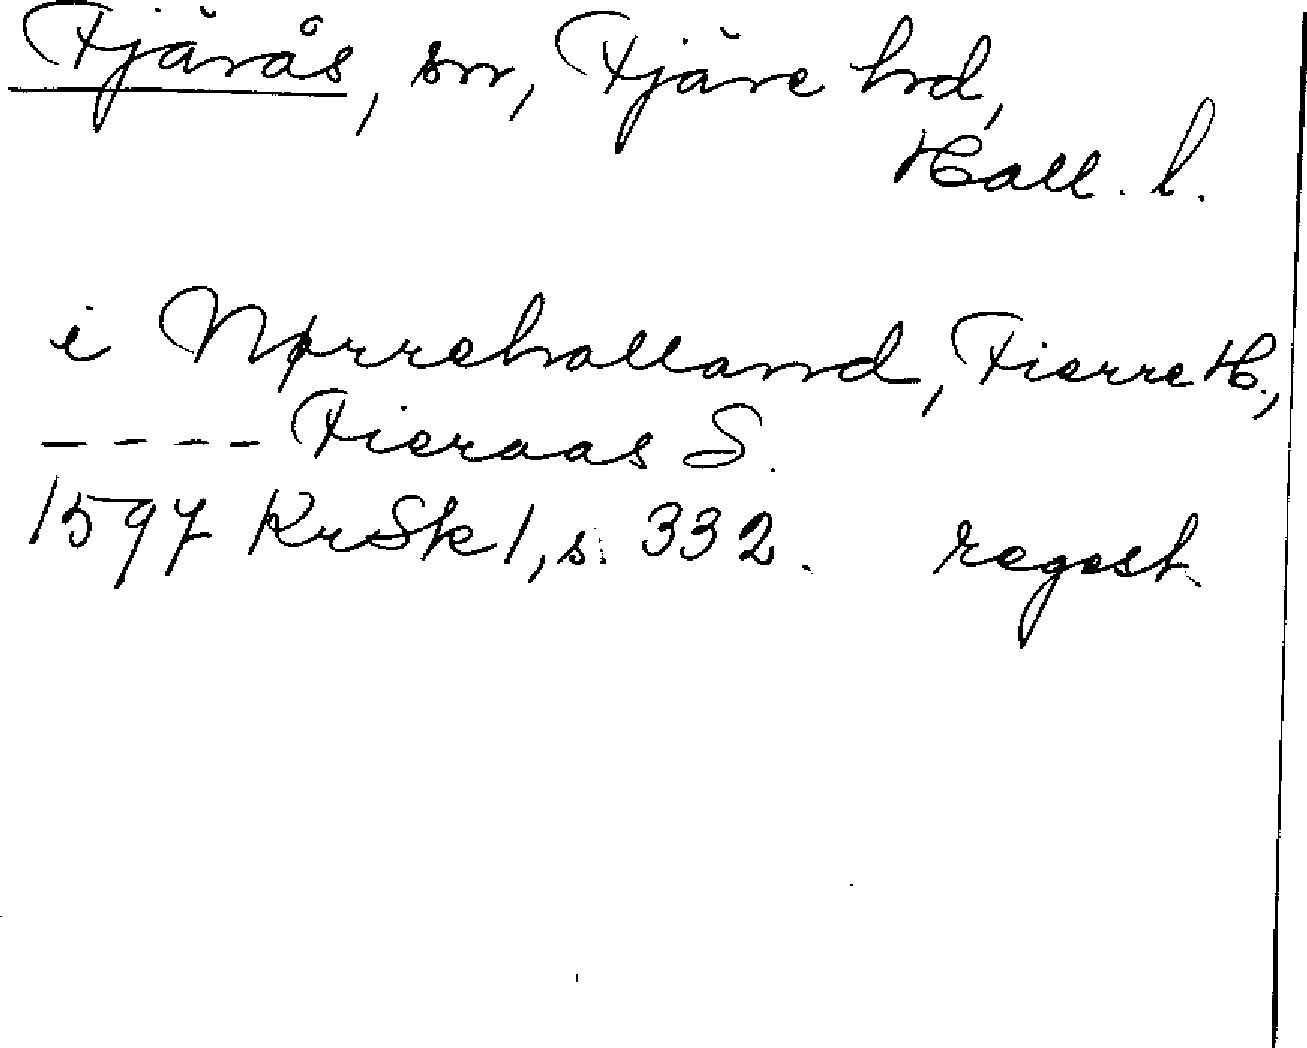 Fjärås, sn, Fjäre hd,
Hall. l.
i Nørrehalland, Fierre H.,
---- Fieraas S.
1597 KrSk 1, s. 332. regest